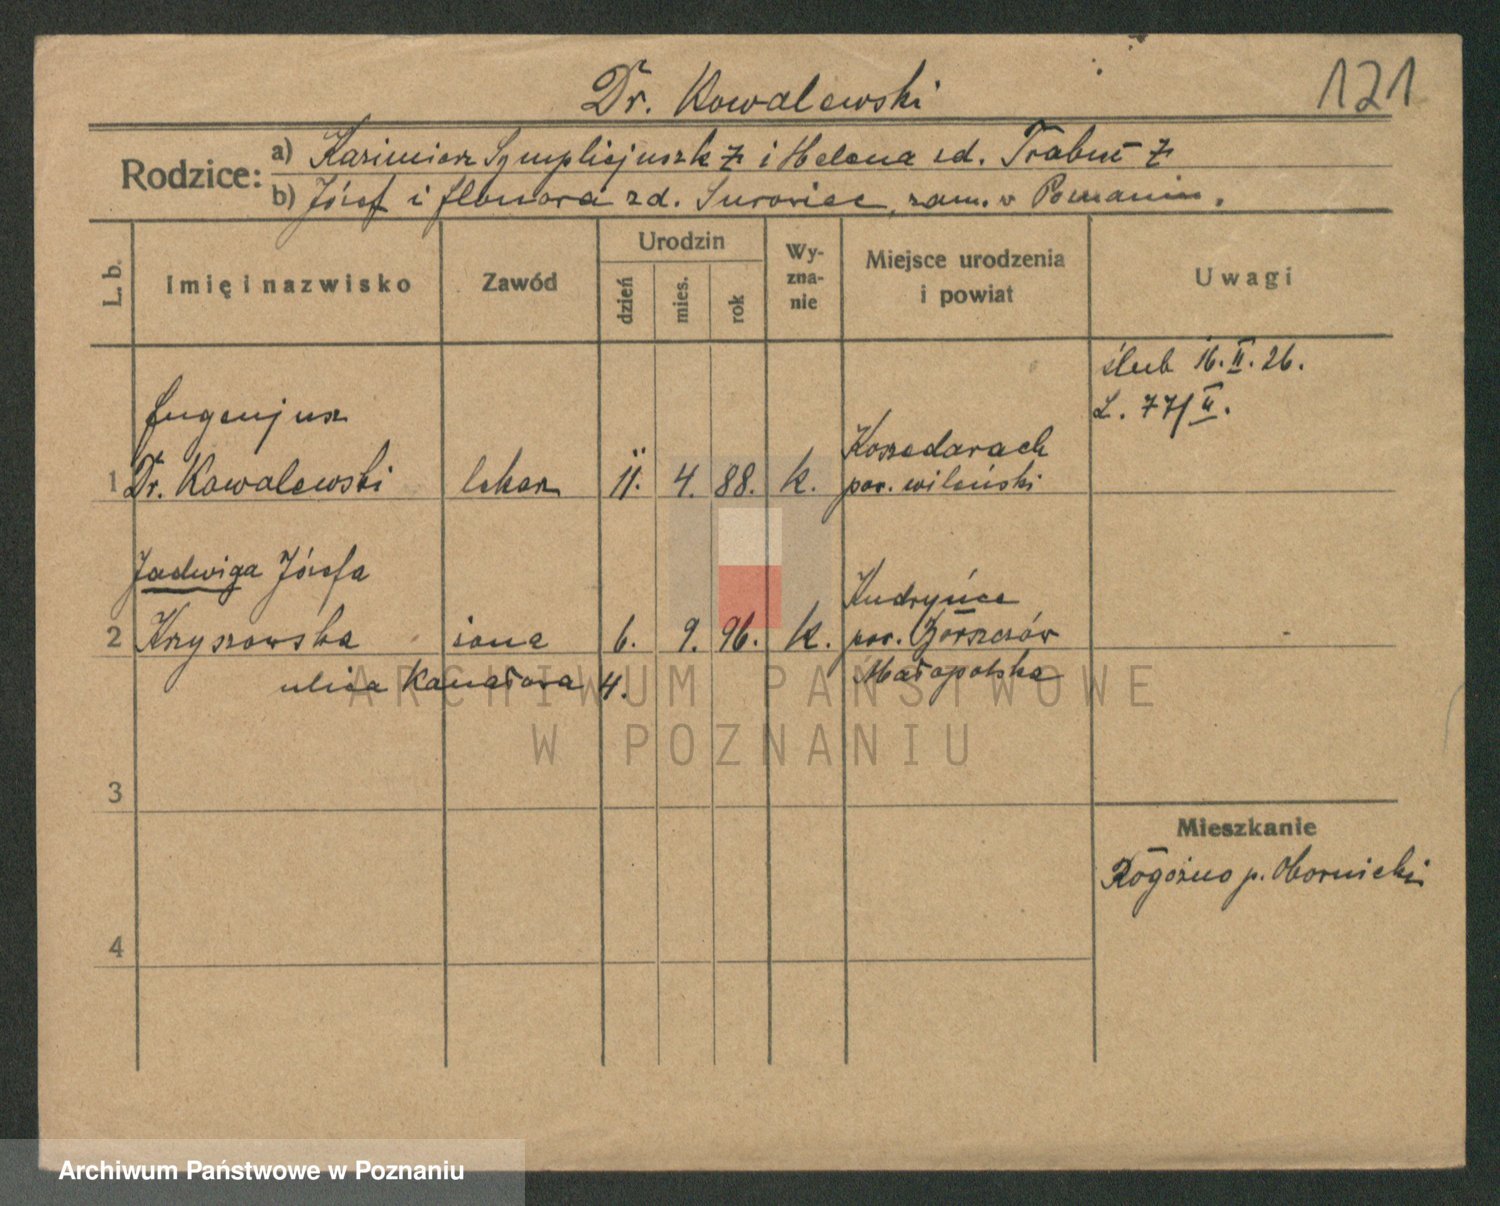 Dr. Kowalewski
121
Rodzice:
a) Kazimierz Symplicjusz i Helena zd.
b) Józef i Eleonora zd. Surowiec, zam. w Poznaniu.
L. b.
Imię i nazwisko
Zawód
Urodzin
dzień
mies.
rok
Wy-
zna-
nie
Miejsce urodzenia
i powiat
Uwagi
ślub 16. II. 26.
L. 77/II.
Eugenjusz
1 Dr. Kowalewski lekarz 11. 4. 88. k. Koszedarach
pow. wileński
Jadwiga Józefa
2 Krzyszowska żona 6. 9. 96. k. Kudryńce
pow. Borszczów
Małopolska
ulica Kanałowa 4.
3
4
Mieszkanie
Rogoźno p. Obornicki
ARCHIWUM PAŃSTWOWE
W POZNANIU
Archiwum Państwowe w Poznaniu